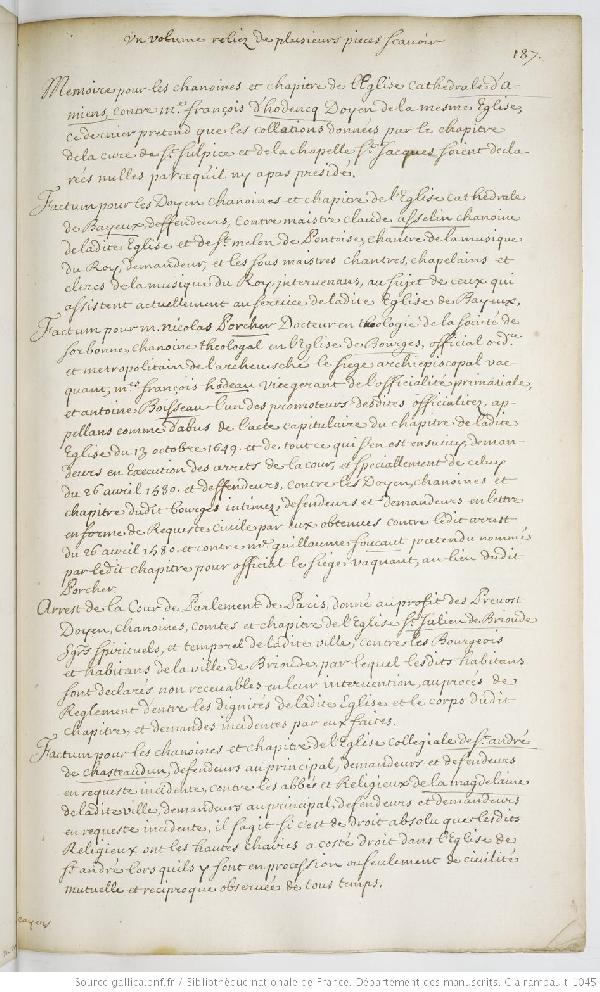 Un volume reliez de plusieurs pieces scavoir
187.
Memoire pour les chanoines et chapitre de l'Eglise Cathedrale d'a-
miens, contre Me. françois d'hodencq Doyen de la mesme Eglise,
ce dernier pretend que les collations données par le chapitre
de la cure de St. Sulpice et de la chapelle St. Jacques soient decla-
rées nulles parcequ'il ny a pas presidé.
Factum pour les Doyen, chanoines et chapitre de l'Eglise Cathedrale
de Bayeux deffendeurs, Contre maistre Claude asselin chanoine
de ladite Eglise et de St. melon de Pontoise, chantre de la musique
du Roy, demandeur, et les sous maistres chantres, chapelains et
clercs de la musique du Roy, intervenans, au sujet de ceux qui
assistent actuellement au service de ladite Eglise de Bayeux.
Factum pour m. nicolas Porcher Docteur en theologie de la societé de
Sorbonne, chanoine theologal en l'Eglise de Bourges, official ordre.
et metropolitain de l'archevesché le siege archiepiscopal vac-
quant, mre. françois hodeau Vicegerant de l'officialité primatiale,
et antoine Boisseau l'un des promoteurs desdites officialitez, ap-
pellans comme d'abus de l'acte capitulaire du chapitre de ladite
Eglise du 13 octobre 1649. et de tout ce qui s'en est ensuivy, deman-
deurs en Execution des arrets de la cour, et speciallement de celuy
du 26 avril 1580. et deffendeurs, contre les Doyen, chanoines et
chapitre dudit bourges intimez, defendeurs et demandeurs en lettre
en forme de Requeste Civile par eux obtenues contre ledit arrest
du 26 avril 1580. et contre me. guillaume foucaut pretendu nommé
par ledit chapitre pour official le siege vaquant, au lieu dudit
Porcher.
Arrest de la Cour de Parlement de Paris, donné au profit des Prevost
Doyen, chanoines, Comtes et chapitre de l'Eglise St. Julien de Brioude
sgrs. spirituels, et temporel de ladite ville, contre les Bourgeois
et habitans de la ville de Brioude, par lequel lesdits habitans
sont declarés non recevables en leur intervention, au procés de
Reglement d'entre les dignités de ladite Eglise et le corps dudit
chapitre, et demandes incidentes par eux faites.
Factum pour les chanoines et chapitre de l'Eglise collegiale de St. andré
de chasteaudun, defendeurs au principal, demandeurs et defendeurs
en requeste incidente, contre les abbé et Religieux de la magdelaine
de ladite ville, demandeurs au principal, defendeurs et demandeurs
en requeste incidente, il s'agit si c'est de droit absolu que lesdits
Religieux ont les hautes chaires a costé droit dans l'Eglise de
St. andré lors quils y sont en procession ou seulement de civilité
mutuelle et reciproque observée de tous temps.
Source gallica.bnf.fr / Bibliothèque nationale de France. Département des manuscrits. Clairambault 1045